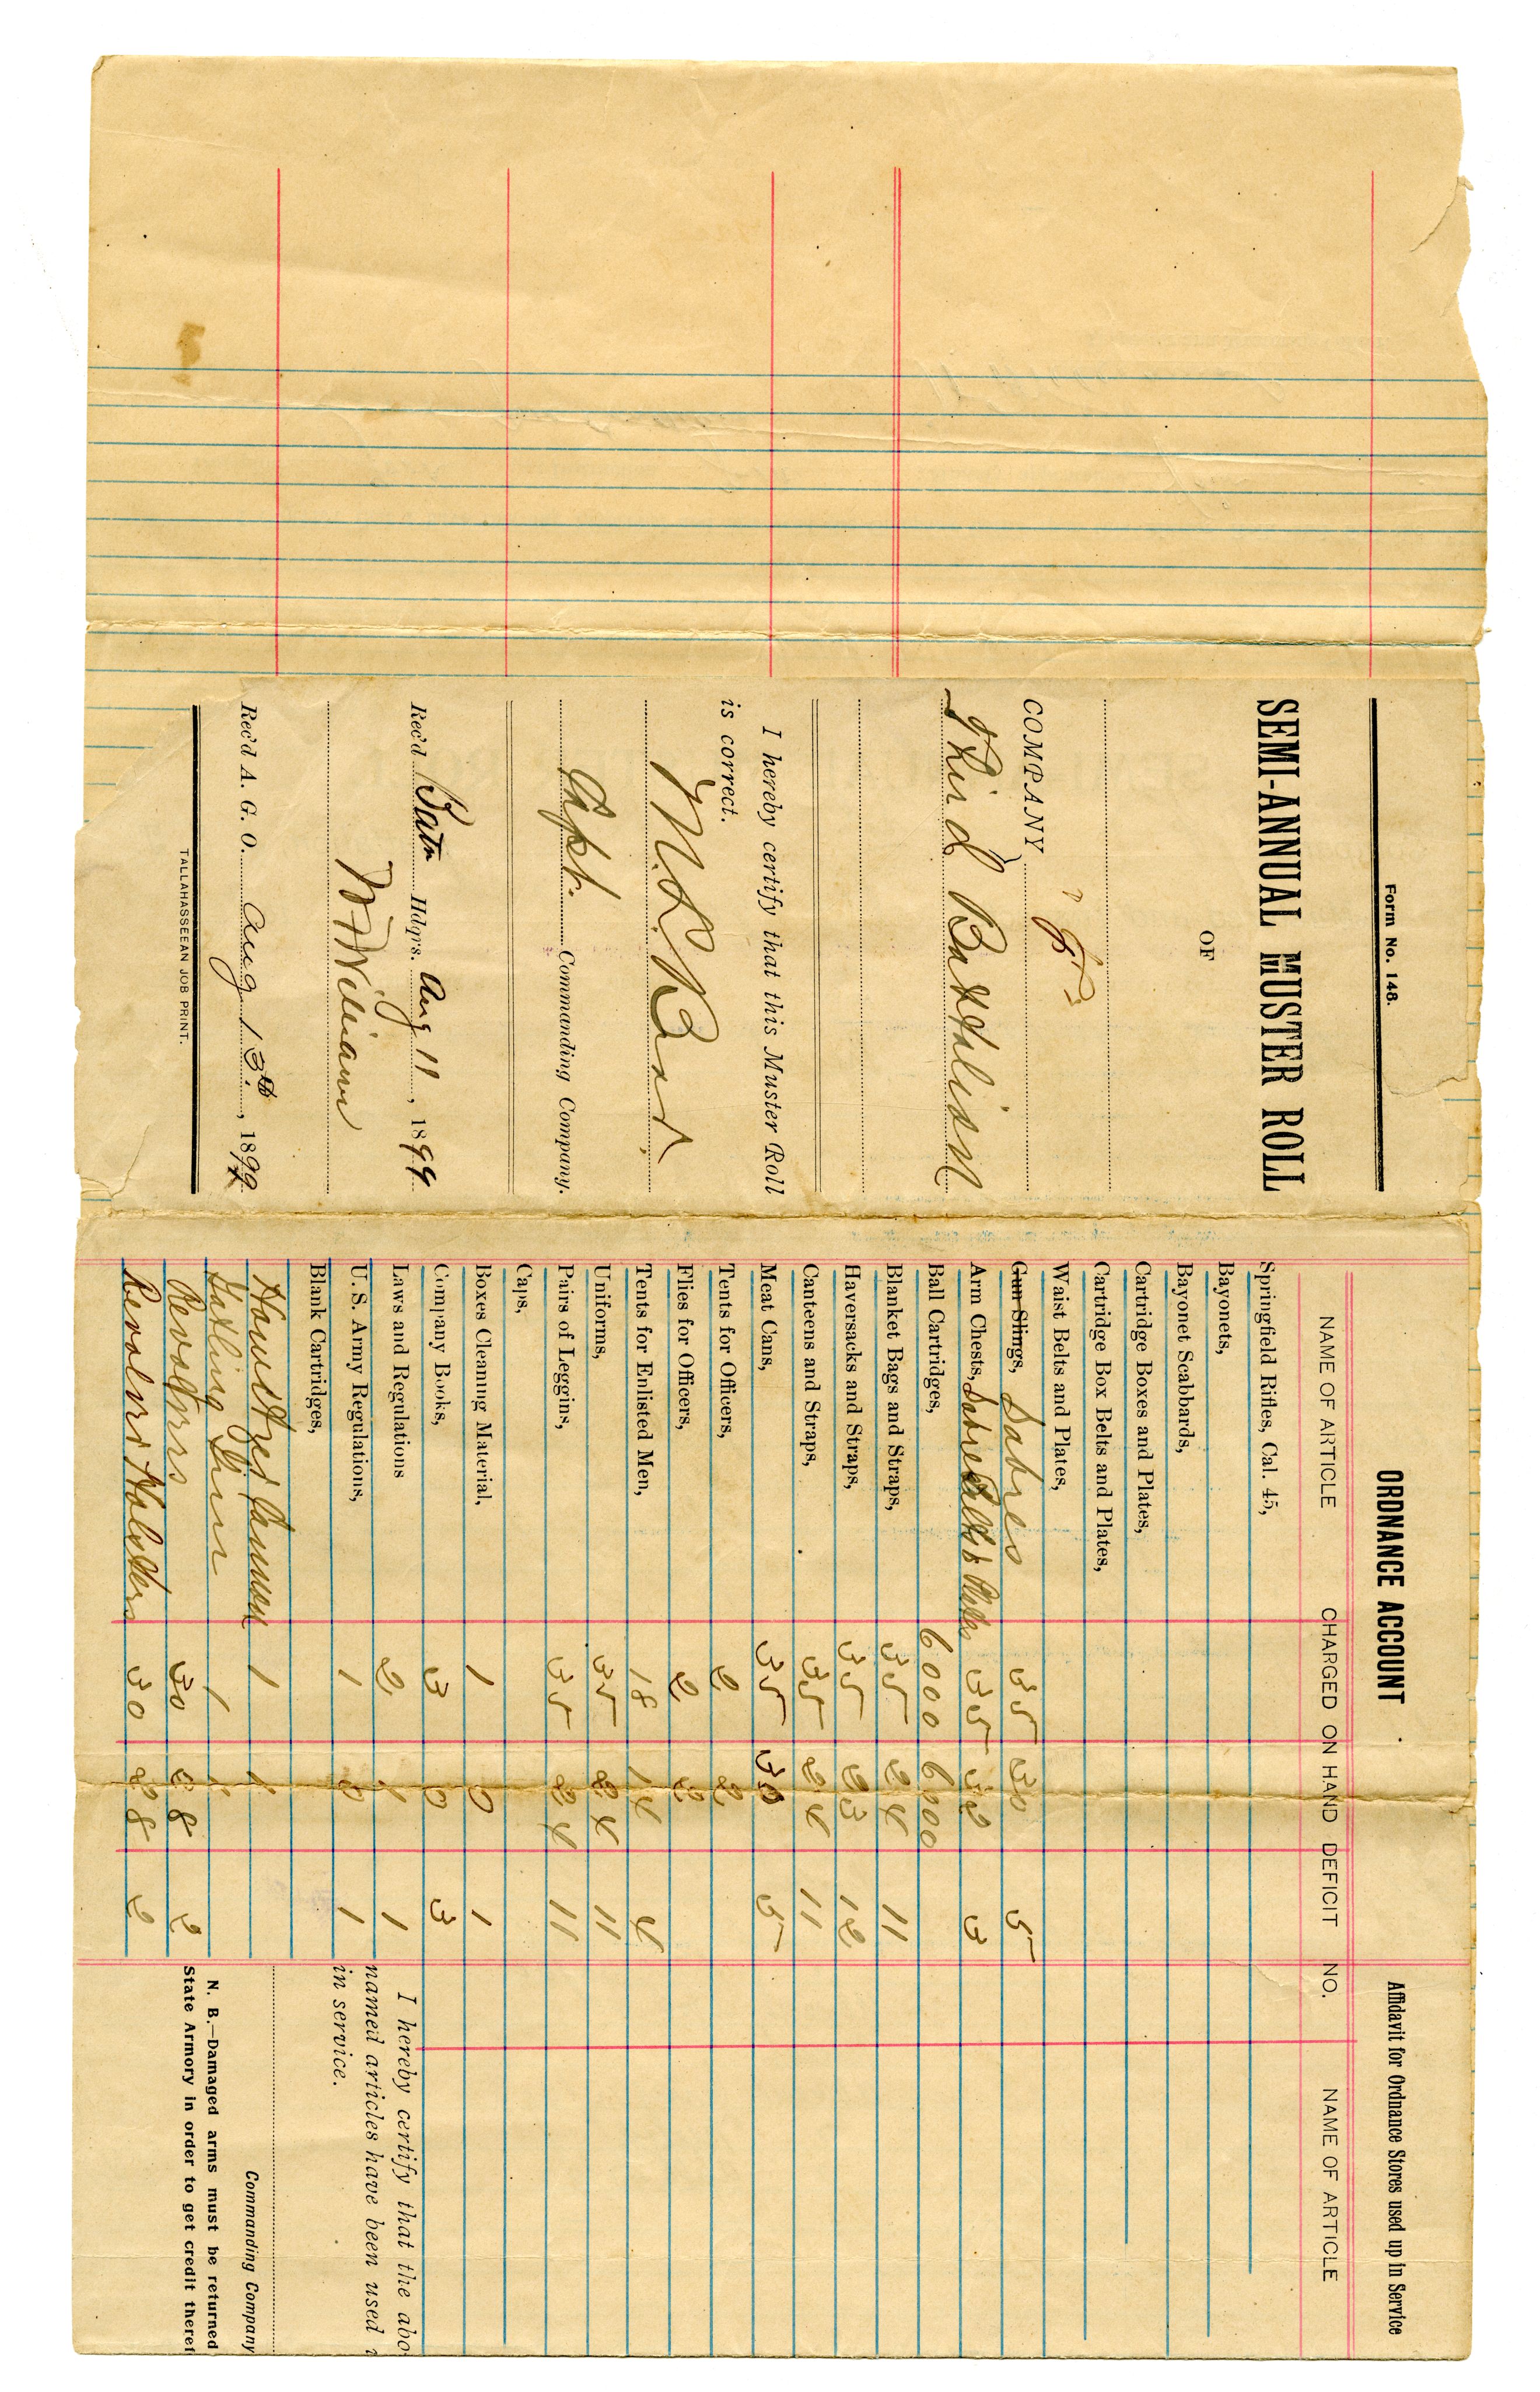 Form No. 148.
SEMI-ANNUAL MUSTER ROLL
OF
COMPANY
Third Battalion
I hereby certify that this Muster Roll
is correct.
Capt. Commanding Company.
Rec'd Batn Hdqrs. Aug 11, 1899
Rec'd A. G. O. Aug 13th, 1899
TALLAHASSEEAN JOB PRINT.
ORDNANCE ACCOUNT
NAME OF ARTICLE CHARGED ON HAND DEFICIT
Springfield Rifles, Cal. 45,
Bayonets,
Bayonet Scabbards,
Cartridge Boxes and Plates,
Cartridge Box Belts and Plates,
Waist Belts and Plates,
Gun Slings, Sabres 35 30 5
Arm Chests, Sabre Belts & Plates 35 32 3
Ball Cartridges, 6000 6000
Blanket Bags and Straps, 35 24 11
Haversacks and Straps, 35 23 12
Canteens and Straps, 35 24 11
Meat Cans, 35 30 5
Tents for Officers, 2 2
Flies for Officers, 2 2
Tents for Enlisted Men, 18 14 4
Uniforms, 35 24 11
Pairs of Leggins, 35 24 11
Caps,
Boxes Cleaning Material, 1 0 1
Company Books, 3 0 3
Laws and Regulations 2 1 1
U. S. Army Regulations, 1 0 1
Blank Cartridges,
Howitzer Cannon 1 1
Gatling Gun 1 1
Revolvers 30 28 2
Revolver Holsters 30 28 2
Affidavit for Ordnance Stores used up in Service
NO. NAME OF ARTICLE
I hereby certify that the abo
named articles have been used
in service.
Commanding Company
N. B.—Damaged arms must be returned
State Armory in order to get credit theref